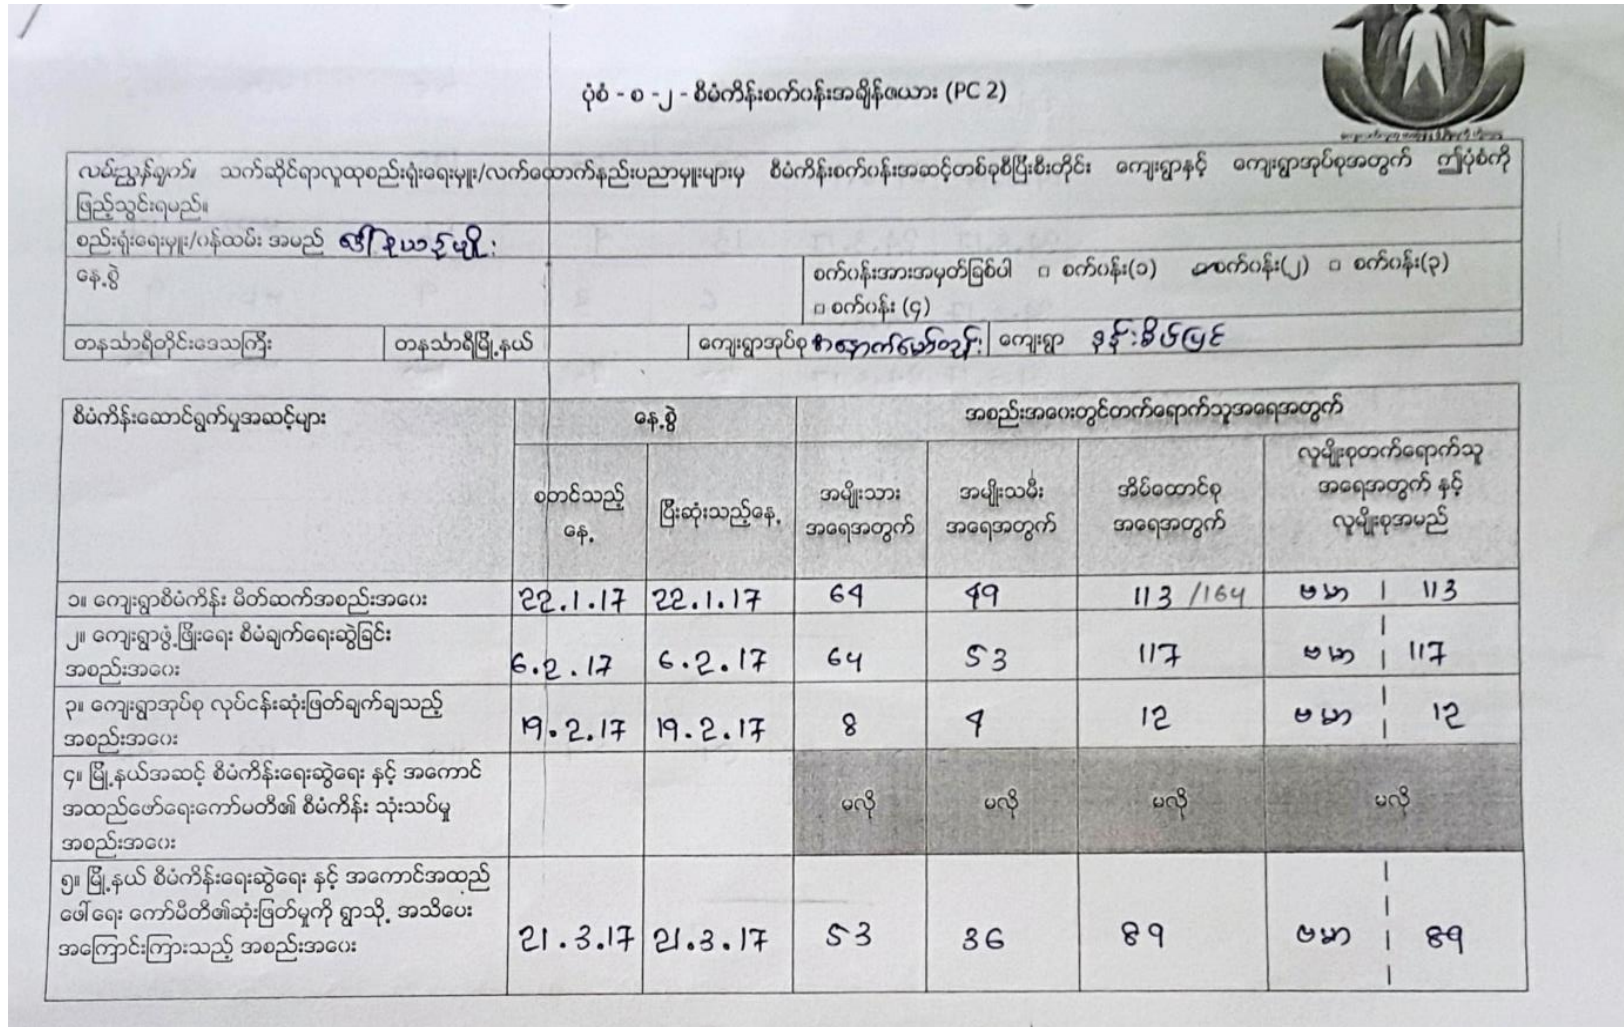 ပုံစံ - စ -၂ - စီမံကိန်းစက်ဝန်းအချိန်ဇယား (PC 2)
လမ်းညွှန်ချက်။ သက်ဆိုင်ရာလူထုစည်းရုံးရေးမှူး/လက်ထောက်နည်းပညာမှူးများမှ စီမံကိန်းစက်ဝန်းအဆင့်တစ်ခုစီပြီးစီးတိုင်း ကျေးရွာနှင့် ကျေးရွာအုပ်စုအတွက် ဤပုံစံကို
ဖြည့်သွင်းရမည်။
စည်းရုံးရေးမှူး/ဝန်ထမ်း အမည်
နေ့စွဲ
စက်ဝန်းအားအမှတ်ခြစ်ပါ □ စက်ဝန်း(၁) စက်ဝန်း(၂) □ စက်ဝန်း(၃)
□ စက်ဝန်း (၄)
တနင်္သာရီတိုင်းဒေသကြီး တနင်္သာရီမြို့နယ် ကျေးရွာအုပ်စု ကျေးရွာ
စီမံကိန်းဆောင်ရွက်မှုအဆင့်များ နေ့စွဲ အစည်းအဝေးတွင်တက်ရောက်သူအရေအတွက်
စတင်သည့်
နေ့
ပြီးဆုံးသည့်နေ့
အမျိုးသား
အရေအတွက်
အမျိုးသမီး
အရေအတွက်
အိမ်ထောင်စု
အရေအတွက်
လူမျိုးစုတက်ရောက်သူ
အရေအတွက် နှင့်
လူမျိုးစုအမည်
၁။ ကျေးရွာစီမံကိန်း မိတ်ဆက်အစည်းအဝေး 22.1.17 22.1.17 64 49 113 /164 ဗမာ | 113
၂။ ကျေးရွာဖွံ့ဖြိုးရေး စီမံချက်ရေးဆွဲခြင်း
အစည်းအဝေး 6.2.17 6.2.17 64 53 117 ဗမာ | 117
၃။ ကျေးရွာအုပ်စု လုပ်ငန်းဆုံးဖြတ်ချက်ချသည့်
အစည်းအဝေး 19.2.17 19.2.17 8 4 12 ဗမာ | 12
၄။ မြို့နယ်အဆင့် စီမံကိန်းရေးဆွဲရေး နှင့် အကောင်
အထည်ဖော်ရေးကော်မတီ၏ စီမံကိန်း သုံးသပ်မှု
အစည်းအဝေး
မလို မလို မလို မလို
၅။ မြို့နယ် စီမံကိန်းရေးဆွဲရေး နှင့် အကောင်အထည်
ဖေါ်ရေး ကော်မိတီ၏ဆုံးဖြတ်မှုကို ရွာသို့ အသိပေး
အကြောင်းကြားသည့် အစည်းအဝေး 21.3.17 21.3.17 53 36 89 ဗမာ | 89